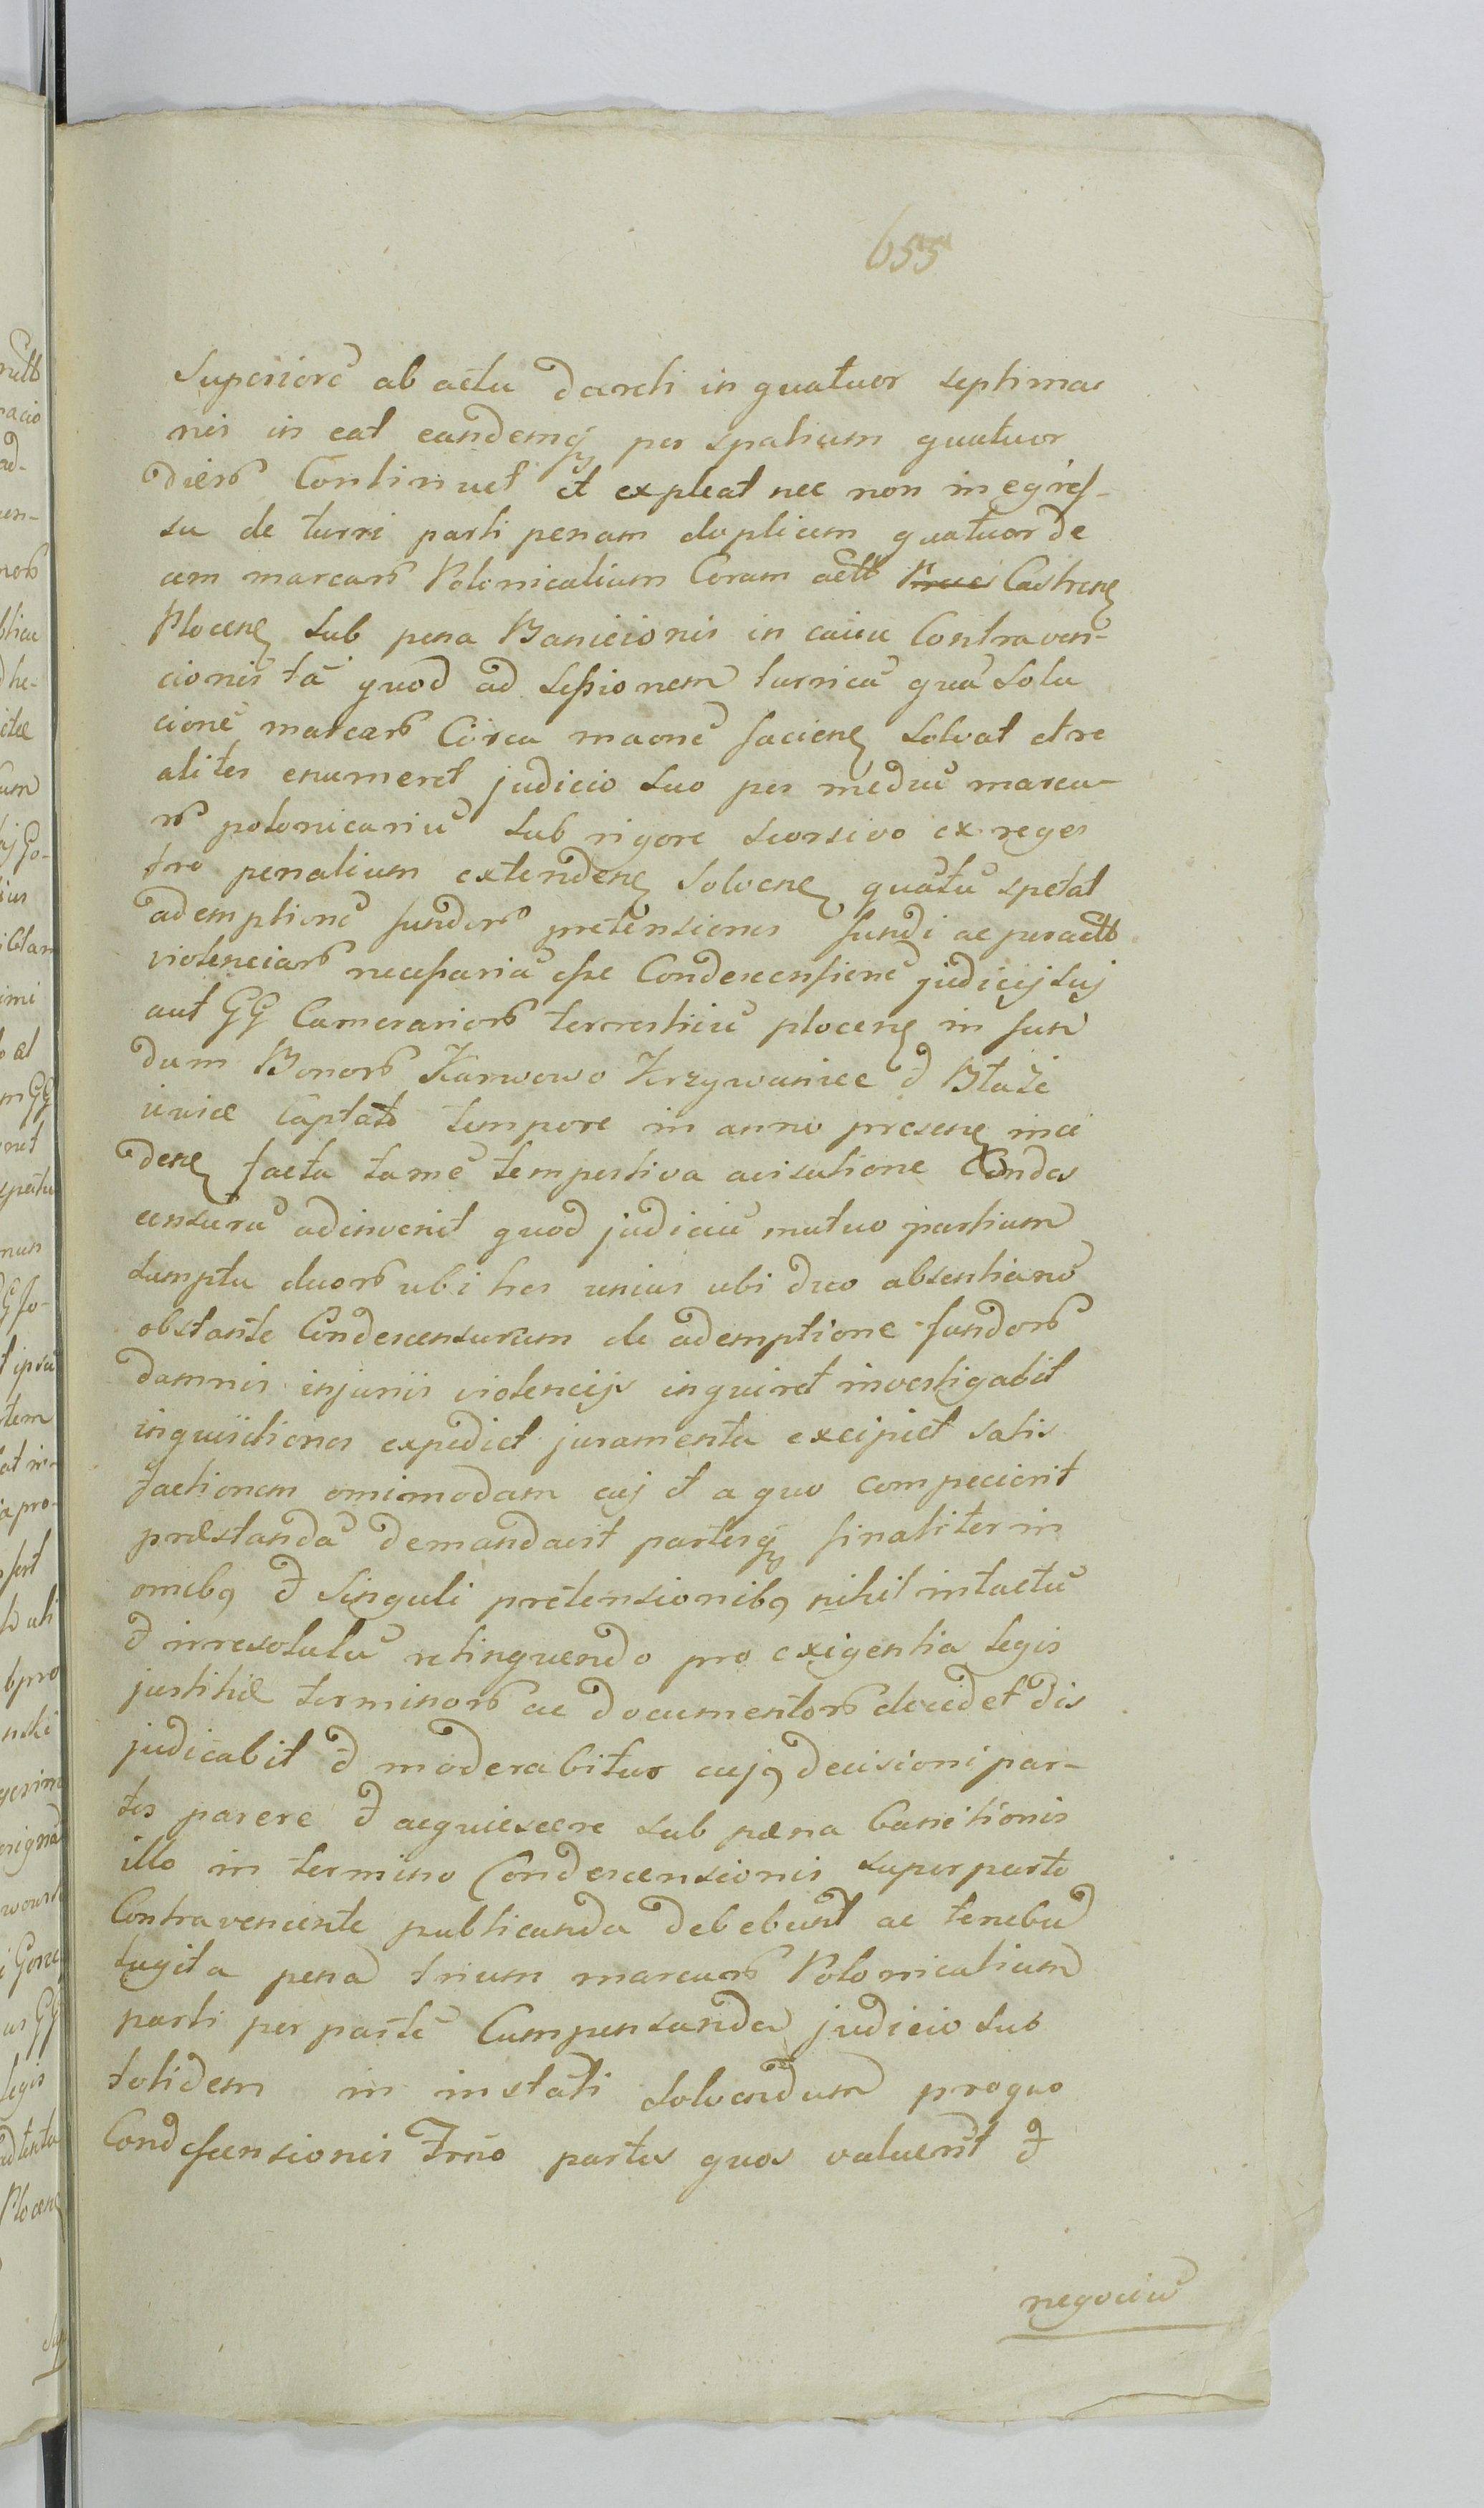 655
Superiore ab actu decreti in quatuor septima
nis in eat eandemq per spatium quatuor
dierb Continuet et expleat nec non in egres-
su de turri parti penam duplicem quatuorde
cem marcarb Polonicalium Coram actb Castrens
Plocens sub pena Banicionis in causu Contraven-
cionis ta quod ad sessionem turrica qua solu
cione marcarb Circa maone faciens solvat et re
aliter enumeret judicio suo per mediu marca-
rb polonicariu sub rigore seorsivo ex reges
tro penalium extendens solvens quatu spetat
ademptione fundorb pretensiones fundi ac peractb
violenciarb necessaria esse Condescensione judicij suj
aut GG Camerariorb terrestriu plocens in fun
dum Bonorb Karwowo Krzywanice et Błaże
iewice captato tempore in anno presens inci
dens facta tame tempestiva avisatione Condes
censura adinvenit quod judiciu mutuo partium
sumptu duorb ubi tres unius ubi duo absentia no
obstante Condescensurum de ademptione fundorb
damnis injuriis violencijs inquiret investigabit
inquisitiones expediet juramenta excipiet satis
factionem omimodam cuj et a quo compecierit
præstanda demandavit partesq finaliter in
omibq et singuli pretensionibq nihil intactu
et irresolutu relinquendo pro exigentia legis
justitiæ terminorb ac documentorb decidet dis
judicabit et moderabitur cujq decisioni par-
tes parere et acquiescere sub pæna banitionis
illo in termino Condescensionis super parte
Contraveniente publicanda debebunt ac tenebu
tugita pena trium marcarb Polonicalium
parti per parte Compensanda judicio suo
totidem in instati solvendum pro quo
Condescensionis Trno partes quos valuerit et
negociu